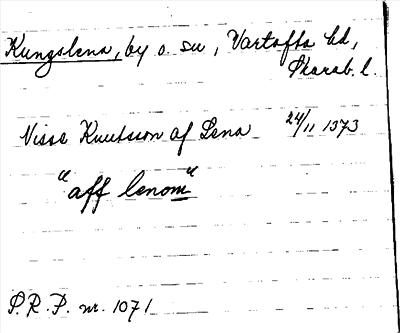 Kungslena, by o. sn, Vartofta hd,
Skarab. l.
Nisse Knutsson af Lena 24/11 1373
"aff lenom"
S.R.P. nr. 1071